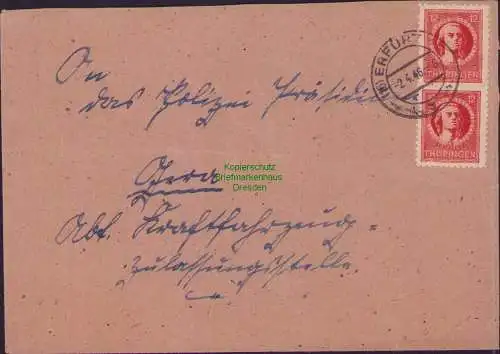 An
das Polizei Präsidium
Gera
Abt. Kraftfahrzeug-
zulassungsstelle
ERFURT
-2.4.46
12 12
THÜRINGEN
12
THÜRINGEN
Kopierschutz
Briefmarkenhaus
Dresden